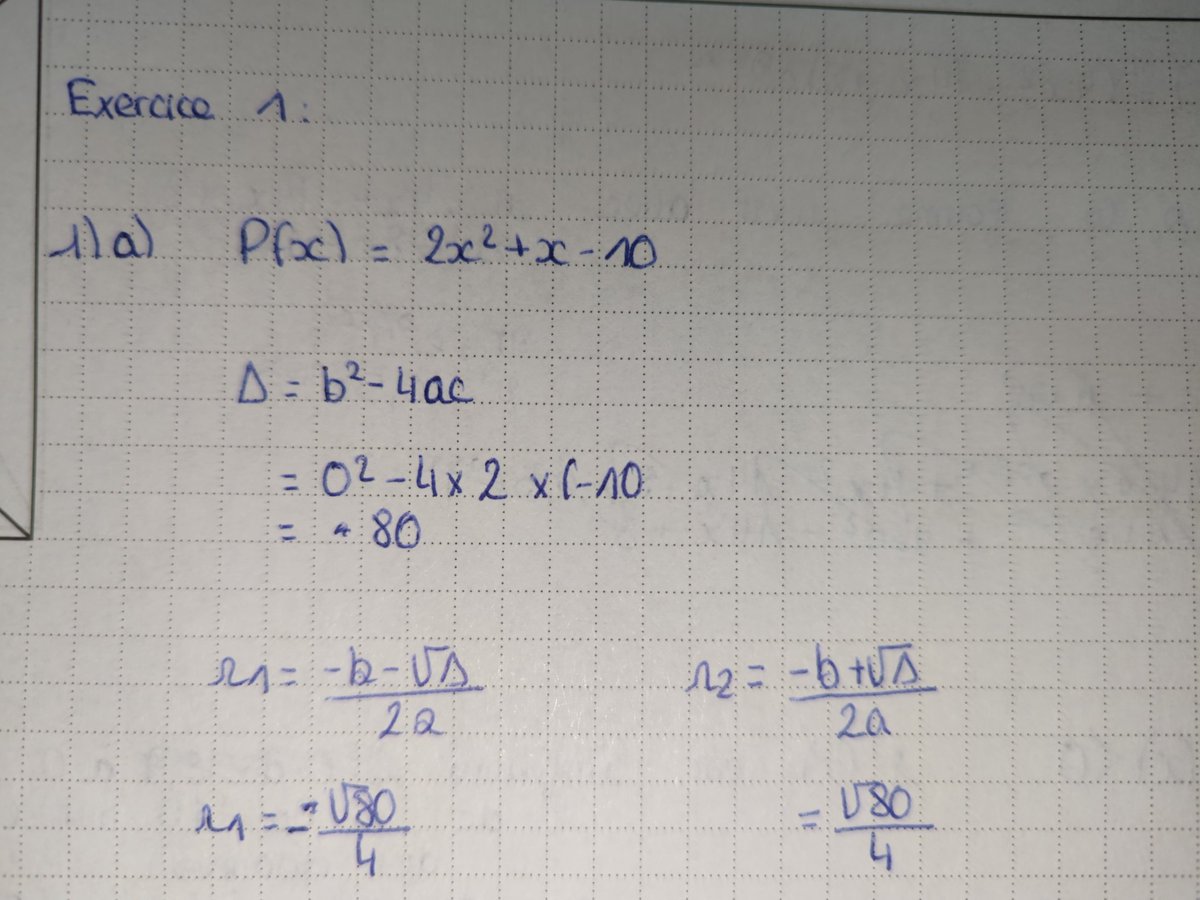 Exercice 1:
1) a) P(x) = 2x² + x - 10
Δ = b² - 4ac
= 0² - 4 x 2 x (-10
= - 80
r1 = (-b - √Δ)/2a r2 = (-b + √Δ)/2a
r1 = - √80/4 = √80/4